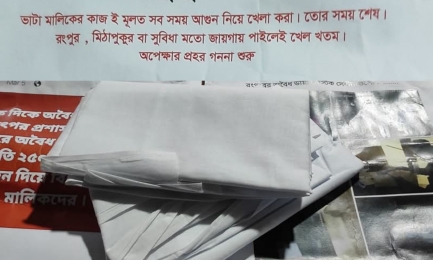 ভাটা মালিকের কাজ ই মূলত সব সময় আগুন নিয়ে খেলা করা। তোর সময় শেষ।
রংপুর , মিঠাপুকুর বা সুবিধা মতো জায়গায় পাইলেই খেল খতম।
অপেক্ষার প্রহর গননা শুরু
দিকে অবৈ
প্রশাস
অবৈধ
তি ২৫
ন দিয়ে
মালিকদের।